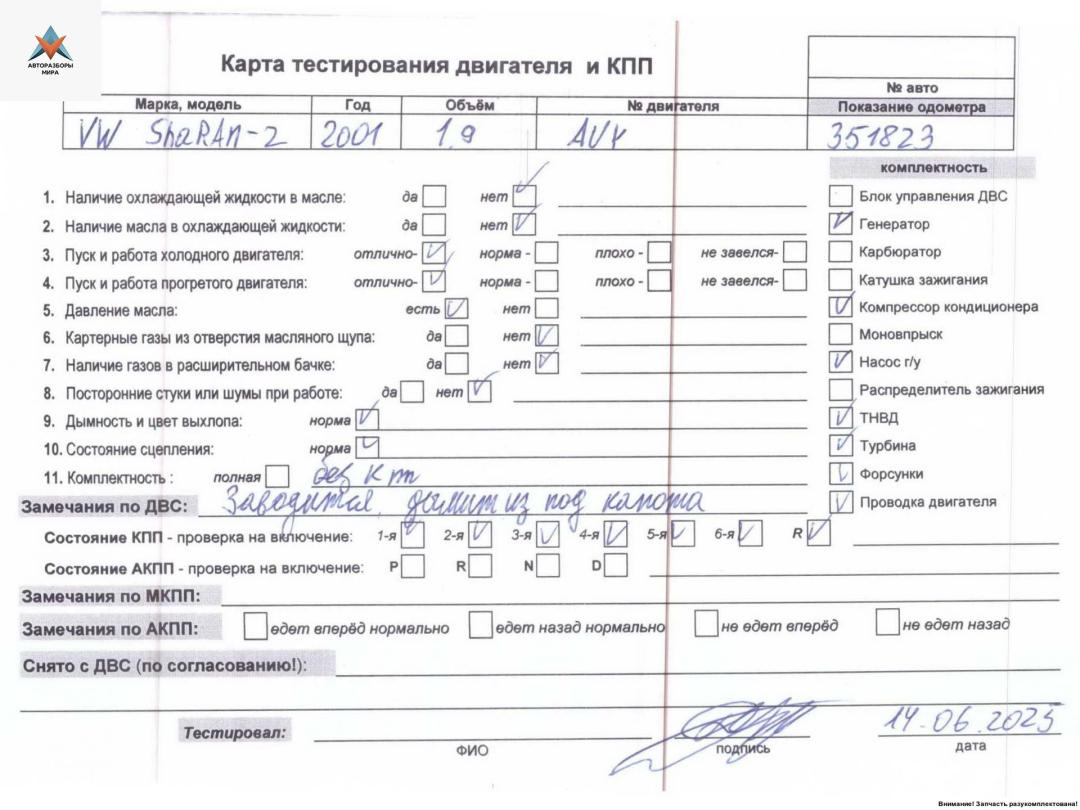 АВТОРАЗБОРЫ
МИРА
Карта тестирования двигателя и КПП
№ авто
Марка, модель Год Объём № двигателя Показание одометра
VW ShaRAn-2 2001 1.9 AUY 351823
комплектность
1. Наличие охлаждающей жидкости в масле: да нет Блок управления ДВС
2. Наличие масла в охлаждающей жидкости: да нет Генератор
3. Пуск и работа холодного двигателя: отлично- норма - плохо - не завелся- Карбюратор
4. Пуск и работа прогретого двигателя: отлично- норма - плохо - не завелся- Катушка зажигания
5. Давление масла: есть нет Компрессор кондиционера
6. Картерные газы из отверстия масляного щупа: да нет Моновпрыск
7. Наличие газов в расширительном бачке: да нет Насос г/у
8. Посторонние стуки или шумы при работе: да нет Распределитель зажигания
9. Дымность и цвет выхлопа: норма ТНВД
10. Состояние сцепления: норма Турбина
11. Комплектность : полная без кпп Форсунки
Замечания по ДВС: Заводится, дымит из под капота Проводка двигателя
Состояние КПП - проверка на включение: 1-я 2-я 3-я 4-я 5-я 6-я R
Состояние АКПП - проверка на включение: P R N D
Замечания по МКПП:
Замечания по АКПП: едет вперёд нормально едет назад нормально не едет вперёд не едет назад
Снято с ДВС (по согласованию!):
14.06.2025
Тестировал:
ФИО подпись дата
Внимание! Запчасть разукомплектована!